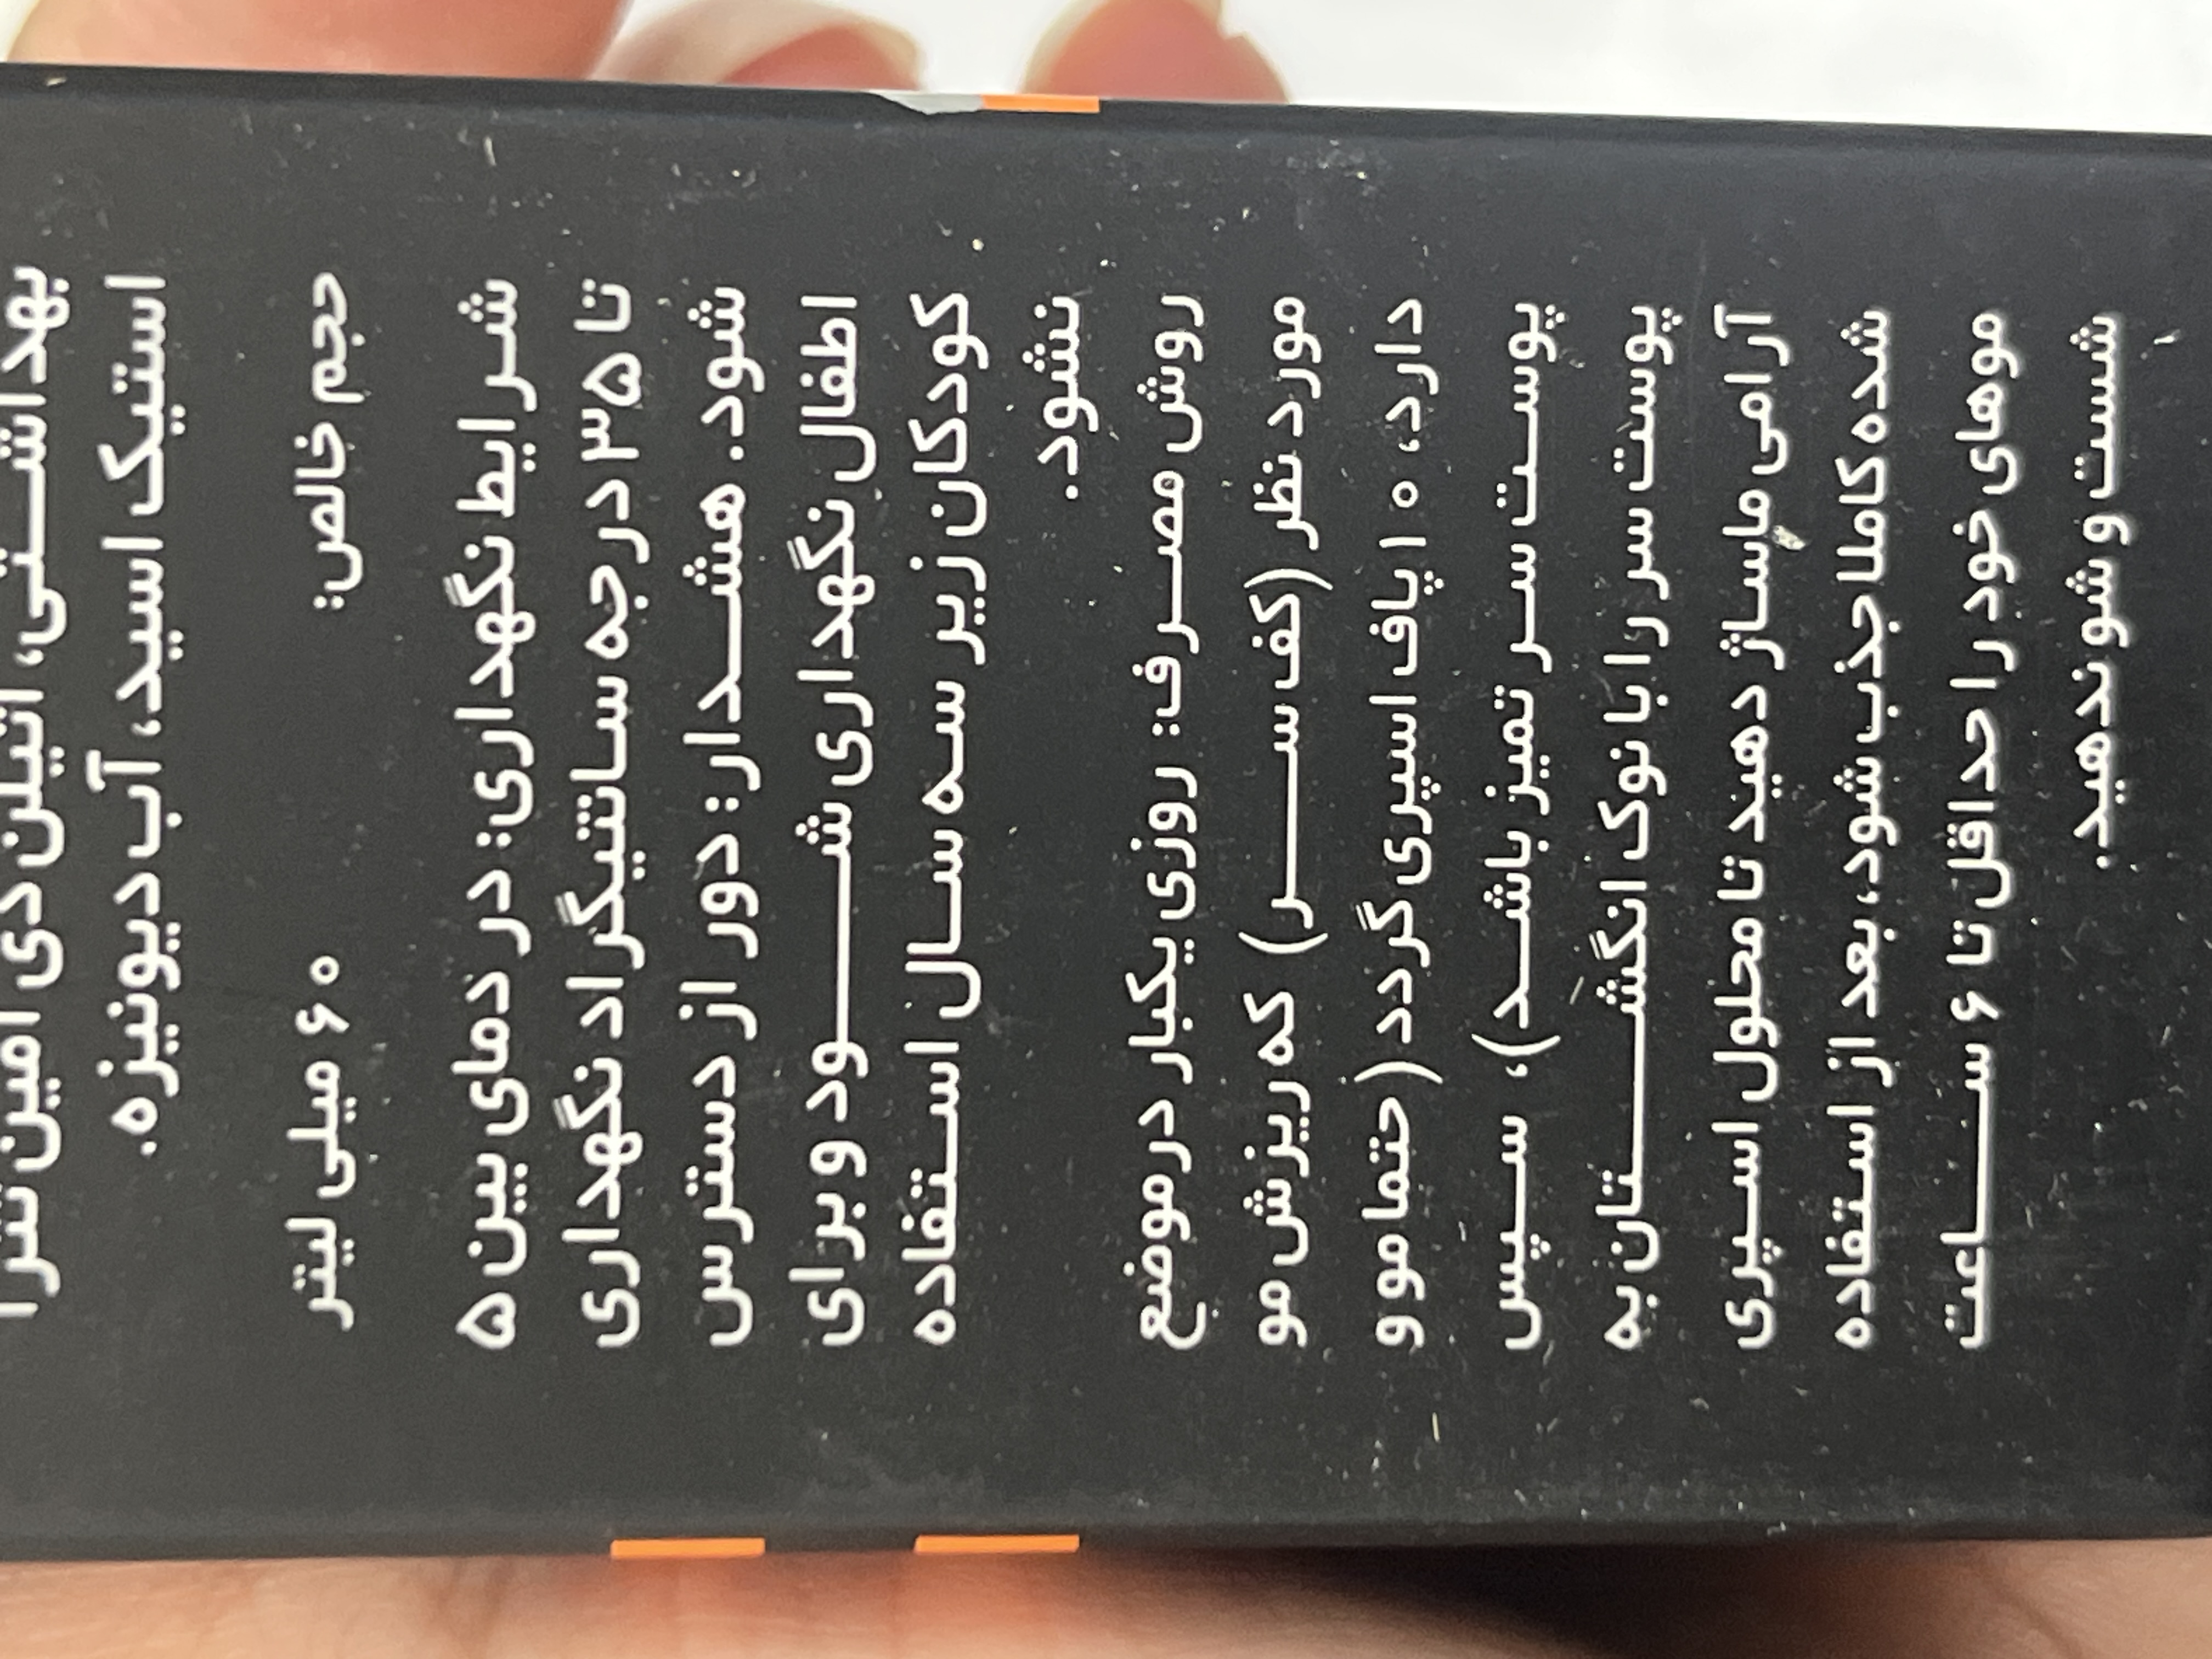 بهداشتی، اتیلن دی آمین تترا
استیک اسید، آب دیونیزه.
حجم خالص: ۶۰ میلی لیتر
شرایط نگهداری: در دمای بین ۵
تا ۳۵ درجه سانتیگراد نگهداری
شود. هشدار: دور از دسترس
اطفال نگهداری شود و برای
کودکان زیر سه سال استفاده
نشود.
روش مصرف: روزی یکبار در موضع
مورد نظر (کف سر) که ریزش مو
دارد، ۱۰ پاف اسپری گردد (حتما مو و
پوست سر تمیز باشد)، سپس
پوست سر را با نوک انگشتان به
آرامی ماساژ دهید تا محلول اسپری
شده کاملا جذب شود، بعد از استفاده
موهای خود را حداقل تا ۶ ساعت
شست و شو ندهید.